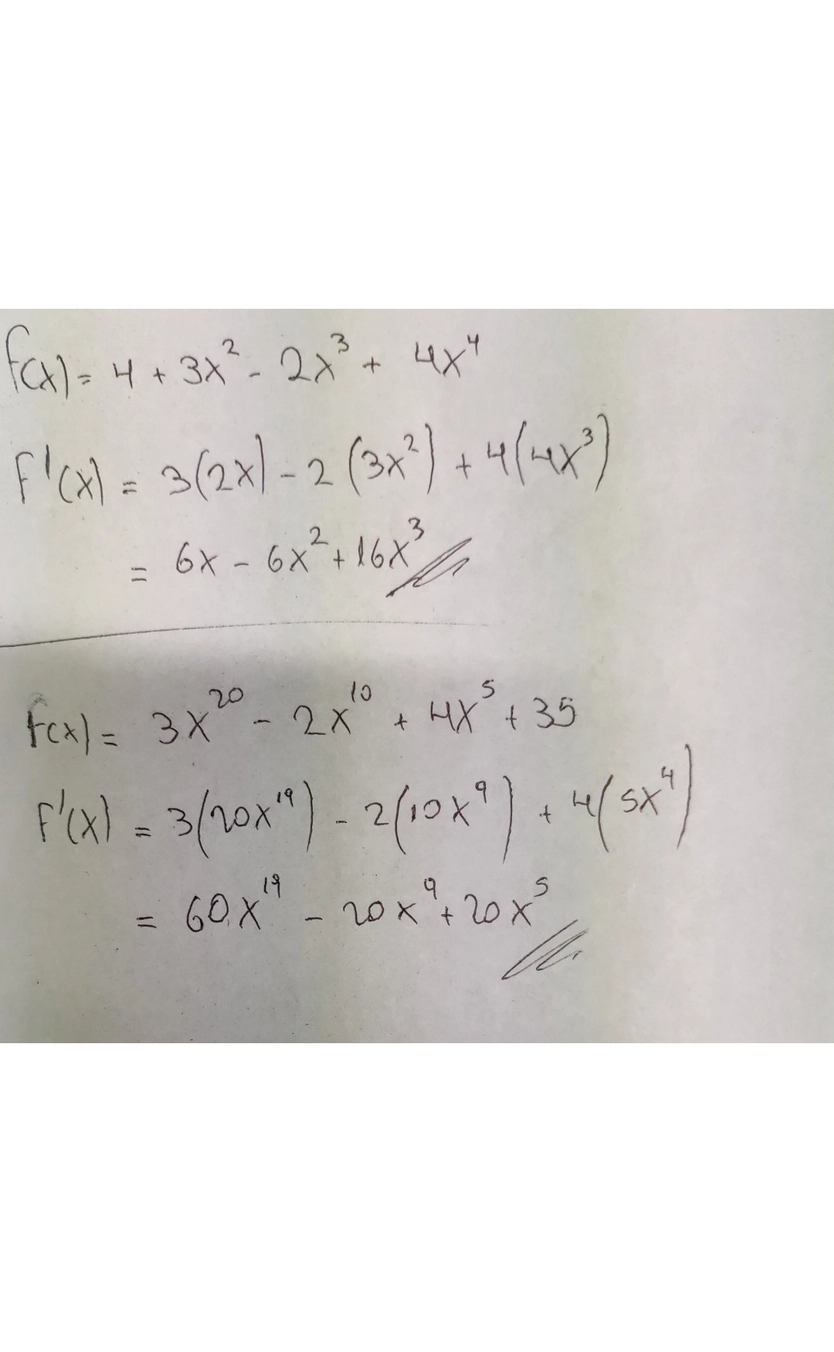 f(x) = 4 + 3x² - 2x³ + 4x⁴
F'(x) = 3(2x) - 2(3x²) + 4(4x³)
= 6x - 6x² + 16x³
f(x) = 3x²⁰ - 2x¹⁰ + 4x⁵ + 35
F'(x) = 3(20x¹⁹) - 2(10x⁹) + 4(5x⁴)
= 60x¹⁹ - 20x⁹ + 20x⁵